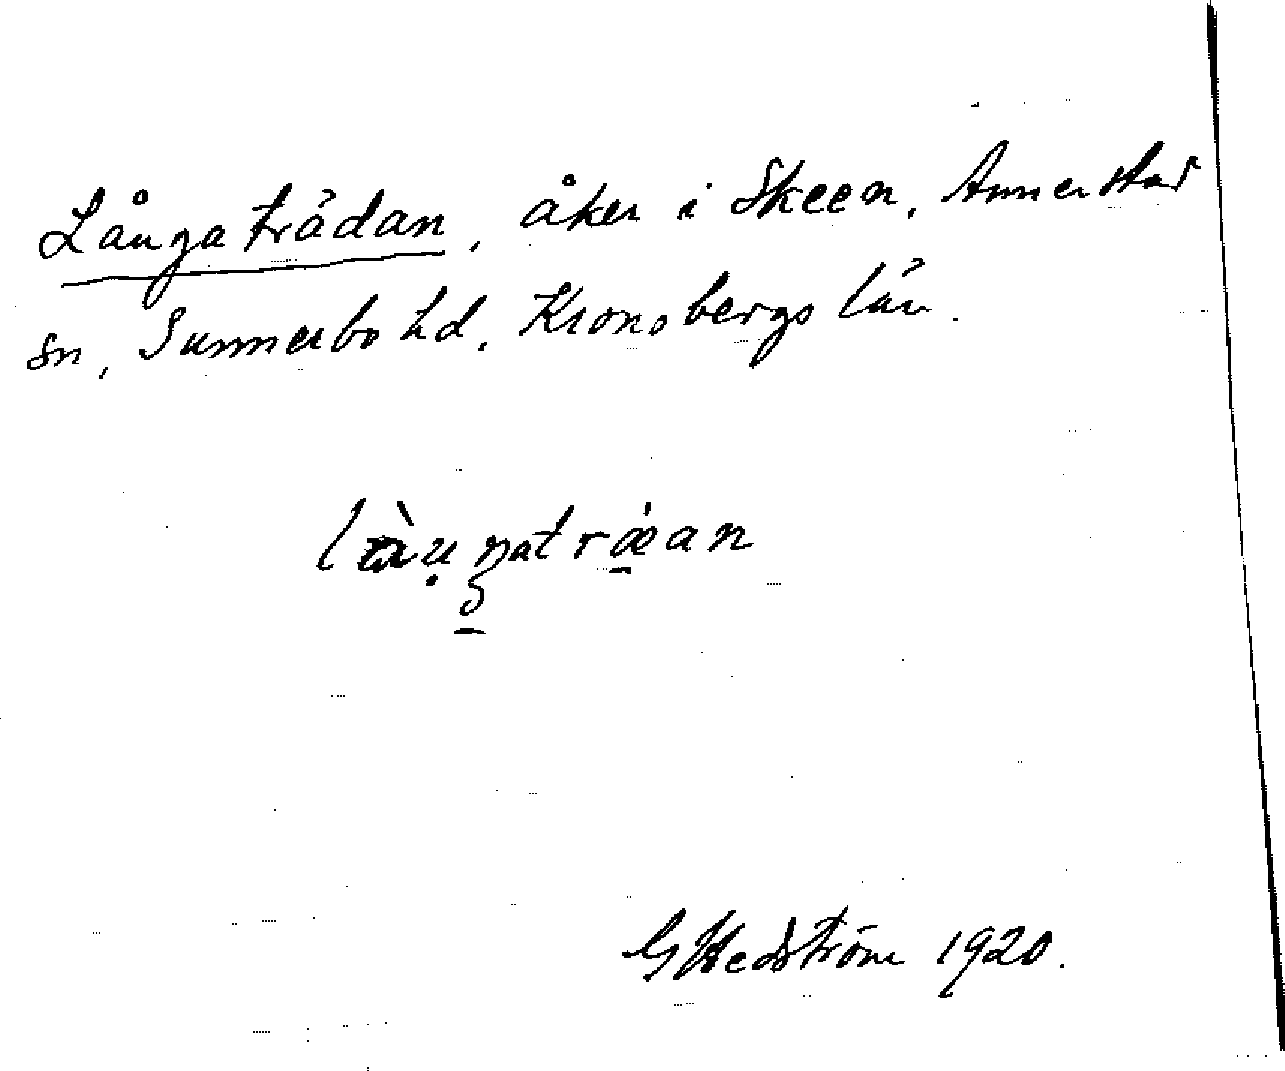 Långaträdan, åker i Skeen, Annerstad
sn, Sunnerbo hd, Kronobergs län.
G Hedström 1920.